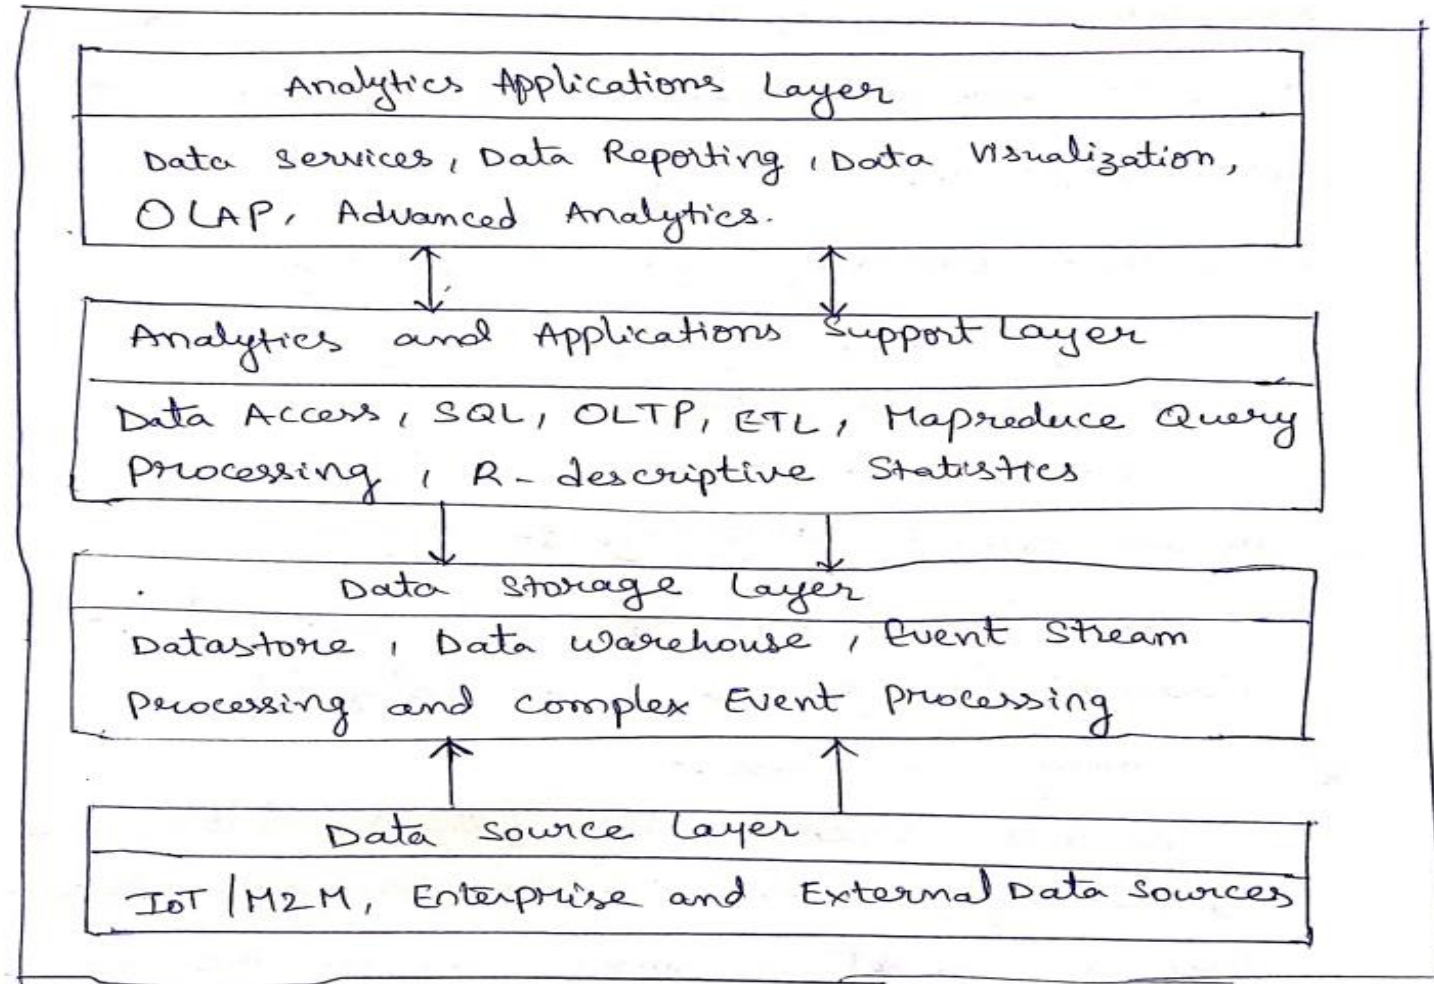 Analytics Applications Layer
Data Services, Data Reporting, Data Visualization,
OLAP, Advanced Analytics.
Analytics and Applications Support Layer
Data Access, SQL, OLTP, ETL, Mapreduce Query
Processing, R-descriptive Statistics
Data Storage Layer
Datastore, Data Warehouse, Event Stream
Processing and complex Event Processing
Data Source Layer
IoT/M2M, Enterprise and External Data Sources